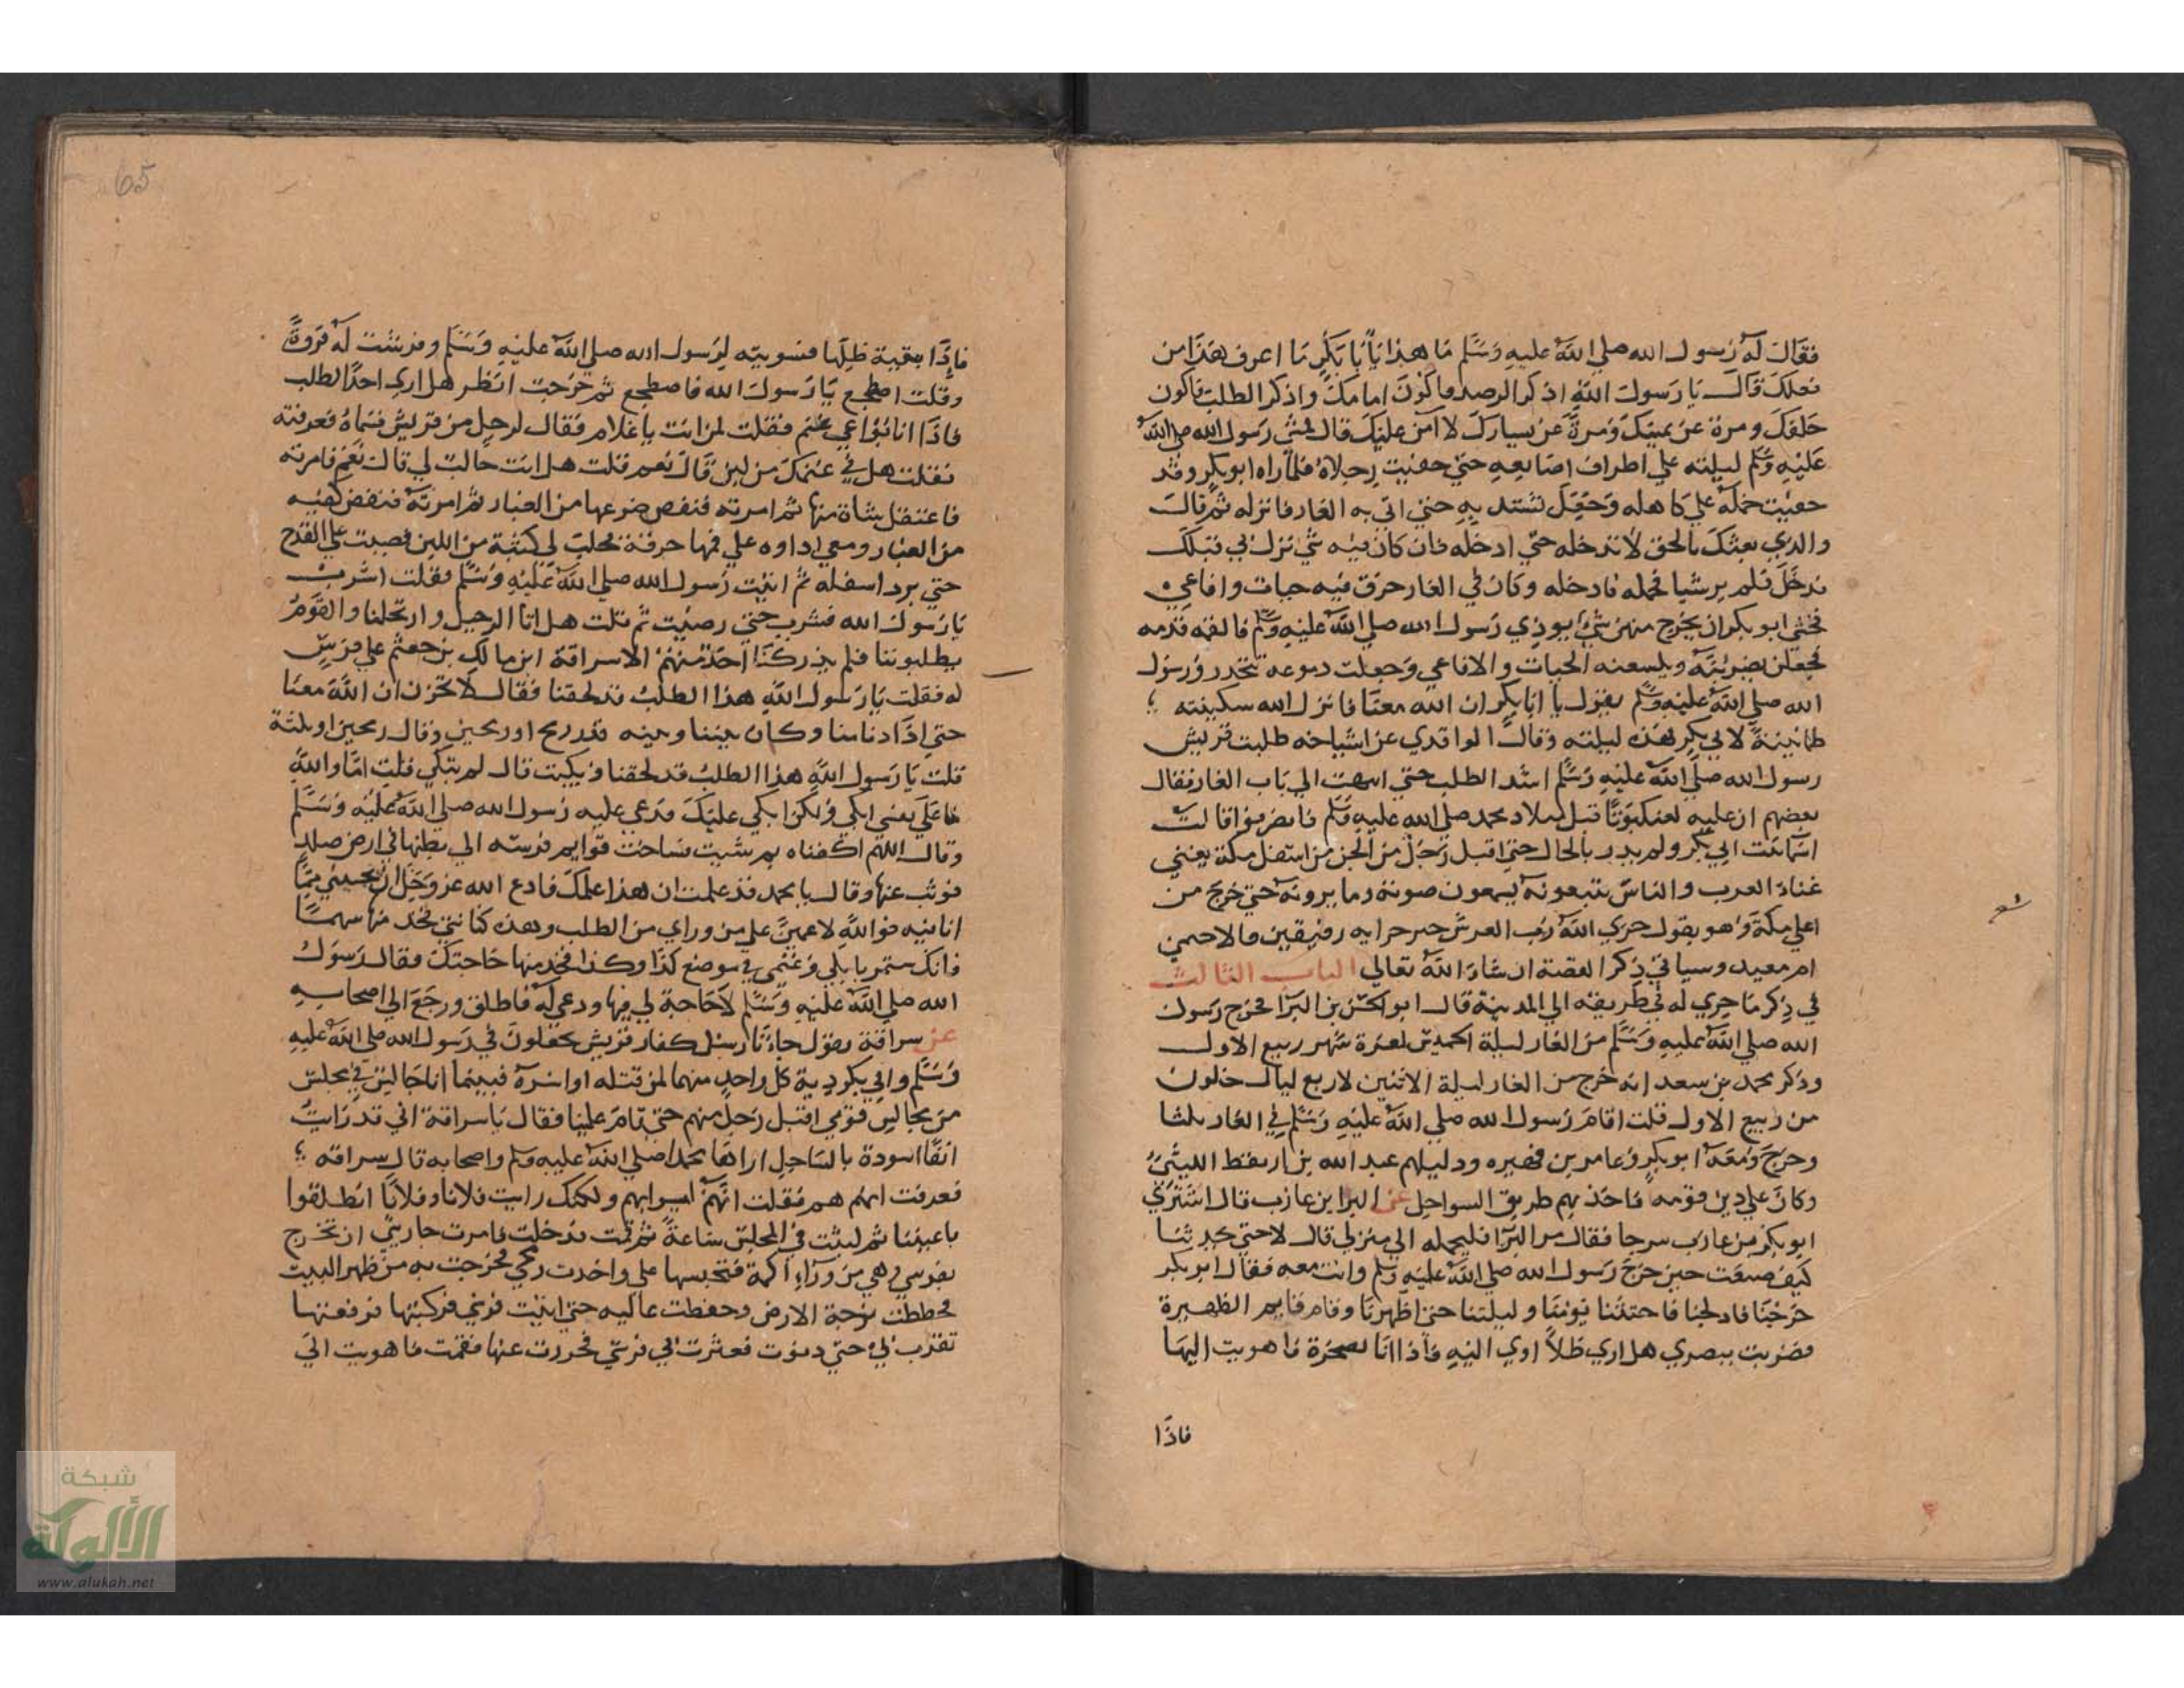 فقال له رسول الله صلي الله عليه وسلم ما هذا يا أبا بكر ما اعرف هذا من
فعلك قال يا رسول الله اذكر الرصد فاكون امامك واذكر الطلب فاكون
خلفك ومرة عن يمينك ومرة عن يسارك لا آمن عليك قال فمشي رسول الله صلي الله
عليه وسلم ليلته علي اطراف اصابعه حتي حفيت رجلاه فلما راه ابو بكر وقد
حفيت حمله علي كاهله وجعل يشتد به حتي اتي به الغار فانزله ثم قال
والذي بعثك بالحق لا تدخله حتي ادخله فان كان فيه شي نزل بي قبلك
فدخل فلم ير شيا فحمله فادخله وكان في الغار خرق فيه حيات وافاعي
فخشي ابو بكر ان يخرج منهن شي يوذي رسول الله صلي الله عليه وسلم فالقمه قدمه
فجعلن يضربنه ويلسعنه الحيات والافاعي وجعلت دموعه تتحدر ورسول
الله صلي الله عليه وسلم يقول يا ابا بكر ان الله معنا فانزل الله سكينته
طمانينة لابي بكر فهذه ليلته وقال الواقدي عن اشياخه طلبت قريش
رسول الله صلي الله عليه وسلم اشد الطلب حتي انتهت الي باب الغار فقال
بعضهم ان عليه لعنكبوتا قبل ميلاد محمد صلي الله عليه وسلم فانصرفوا قالت
اسما بنت ابي بكر ولم يدر بالحال حتي اقبل رجل من الجن من اسفل مكة يغني
غناء العرب والناس يتبعونه يسمعون صوته وما يرونه حتي خرج من
اعلي مكة وهو يقول جزي الله رب العرش خير جزايه رفيقين قالا خيمتي
ام معبد وسياتي ذكر القصة ان شاء الله تعالي الباب الثالث
في ذكر ما جري له في طريقه الي المدينة قال ابو الحسن بن البرا خرج رسول
الله صلي الله عليه وسلم من الغار ليلة الخميس لغرة شهر ربيع الاول
وذكر محمد بن سعد انه خرج من الغار ليلة الاثنين لاربع ليال خلون
من ربيع الاول قلت اقام رسول الله صلي الله عليه وسلم في الغار ثلثا
وخرج ومعه ابو بكر وعامر بن فهيره ودليلهم عبد الله بن اريقط الليثي
وكان علي دين قومه فاخذ بهم طريق السواحل عن البرا بن عازب قال اشتري
ابو بكر من عازب سرجا فقال مر البرا فليحمله الي منزلي قال لا حتي تحدثنا
كيف صنعت حين خرج رسول الله صلي الله عليه وسلم وانت معه فقال ابو بكر
خرجنا فادلجنا فاحثثنا يومنا وليلتنا حتي اظهرنا وقام قايم الظهيرة
فضربت ببصري هل اري ظلا اوي اليه فاذا انا بصخرة فاهويت اليها
فاذا
65
فاذا بقية ظلها فسويته لرسول الله صلي الله عليه وسلم وفرشت له فروة
وقلت اضطجع يا رسول الله فاضطجع ثم خرجت انظر هل اري احدا لطلب
فاذا انا براعي غنم فقلت لمن انت يا غلام فقال لرجل من قريش فسماه فعرفته
فقلت هل في غنمك من لبن قال نعم قلت هل انت حالب لي قال نعم فامرته
فاعتقل شاة منها ثم امرته فنفض ضرعها من الغبار ثم امرته فنفض كفيه
من الغبار ومعي اداوه علي فمها خرقة فحلب لي كثبة من اللبن فصببت علي القدح
حتي برد اسفله ثم اتيت رسول الله صلي الله عليه وسلم فقلت اشرب
يا رسول الله فشرب حتي رضيت ثم قلت هل انا الرحيل وارتحلنا والقوم
يطلبوننا فلم يدركنا احد منهم الا سراقة ابن مالك بن جعشم علي فرس
له فقلت يا رسول الله هذا الطلب قد لحقنا فقال لا تحزن ان الله معنا
حتي اذا دنا منا وكان بيننا وبينه قدر رمح او رمحين وقال رمحين او ثلثة
قلت يا رسول الله هذا الطلب قد لحقنا وبكيت قال لم تبكي قلت اما والله
ما علي نفسي ابكي ولكن ابكي عليك فدعي عليه رسول الله صلي الله عليه وسلم
وقال اللهم اكفناه بم شيت فساخت قوايم فرسه الي بطنها في ارض صلد
فوثب عنها وقال يا محمد قد علمت ان هذا عملك فادع الله عز وجل ان ينجيني مما
انا فيه فوالله لاعمين علي من وراي من الطلب وهذه كنانتي فخذ منها سهما
فانك ستمر بابلي وغنمي في موضع كذا وكذا فخذ منها حاجتك فقال رسول
الله صلي الله عليه وسلم لا حاجة لي فيها ودعي له فاطلق ورجع الي اصحابه
عن سراقة يقول جاءنا رسل كفار قريش يجعلون في رسول الله صلي الله عليه
وسلم وابي بكر دية كل واحد منهما لمن قتله او اسره فبينما انا جالس في مجلس
من مجالس قومي اقبل رجل منهم حتي قام علينا فقال يا سراقة اني قد رايت
انفا اسودة بالساحل اراها محمدا صلي الله عليه وسلم واصحابه قال سراقه
فعرفت انهم هم فقلت انهم ليسوا بهم ولكنك رايت فلانا وفلانا انطلقوا
باعيننا ثم لبثت في المجلس ساعة ثم قمت فدخلت فامرت جاريتي ان تخرج
بفرسي وهي من وراء اكمة فتحبسها علي واخذت رمحي فخرجت به من ظهر البيت
فخططت بزجه الارض وخفضت عاليه حتي اتيت فرسي فركبتها فرفعتها
تقرب بي حتي دنوت فعثرت بي فرسي فخررت عنها فقمت فاهويت الي
شبكة
الألوكة
www.alukah.net